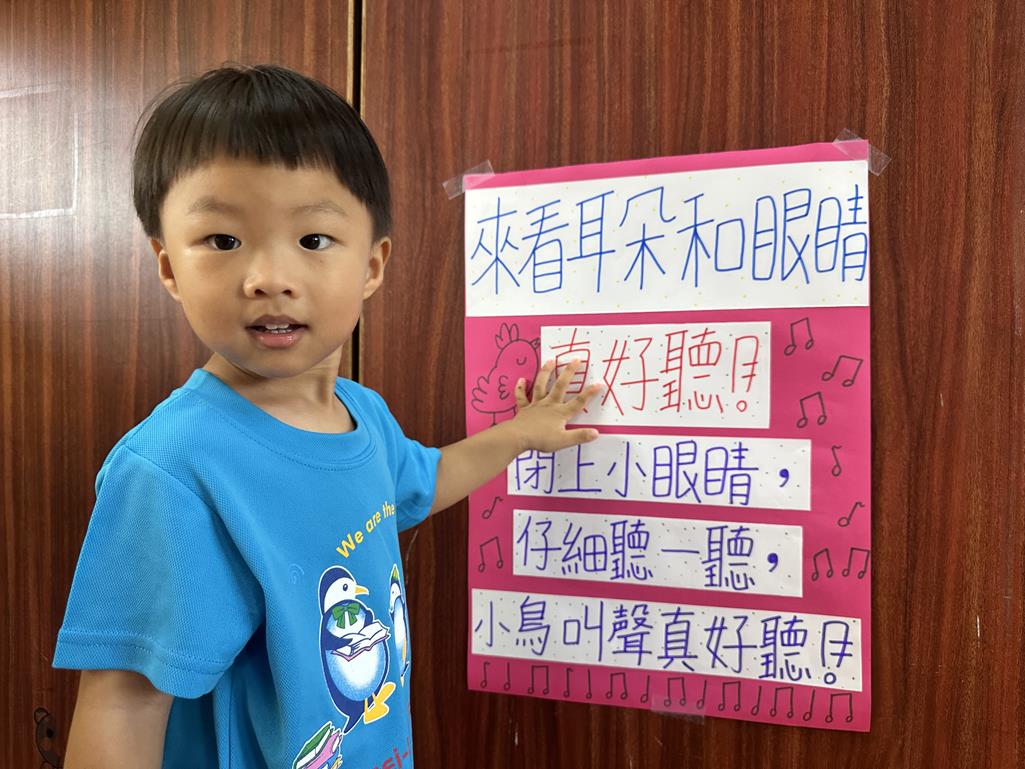 來看耳朵和眼睛
真好聽!
閉上小眼睛，
仔細聽一聽，
小鳥叫聲真好聽!
We are the